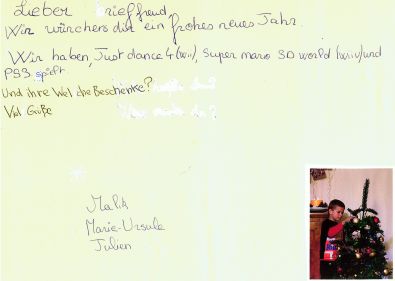 Lieber Brieffreud
Wir würchers dir ein frohes neues Jahr.
Wir haben, Just dance 4 (wii), Super mario 3D world (wiiv) und
PS3 spielt
Und ihre Wel che Beschenke?
Viel Grüße
Malik
Marie-Ursule
Julien